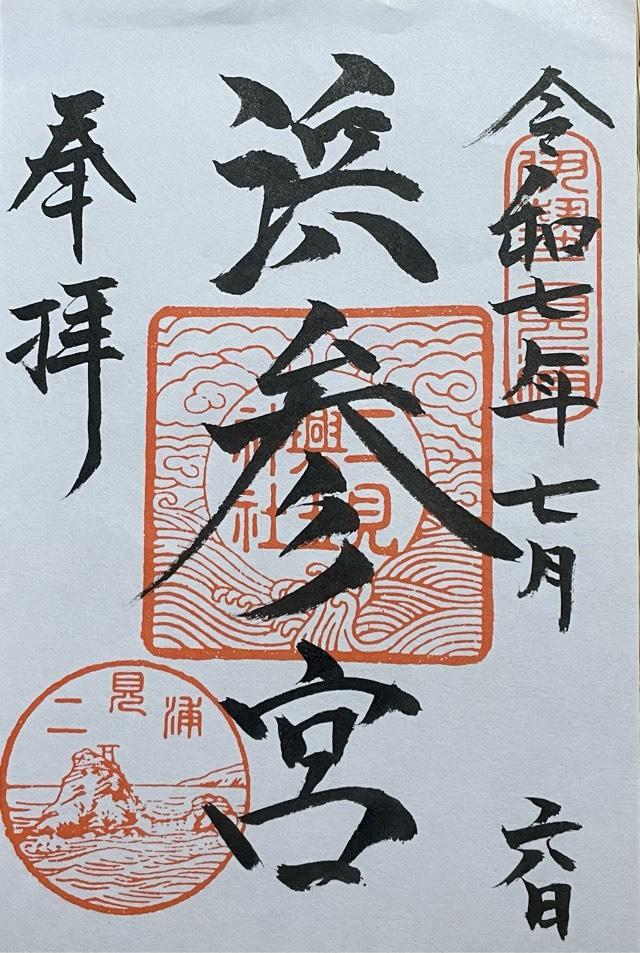 令和七年七月六日
伊勢二見浦
浜参宮
二見
興玉
神社
奉拝
二見浦